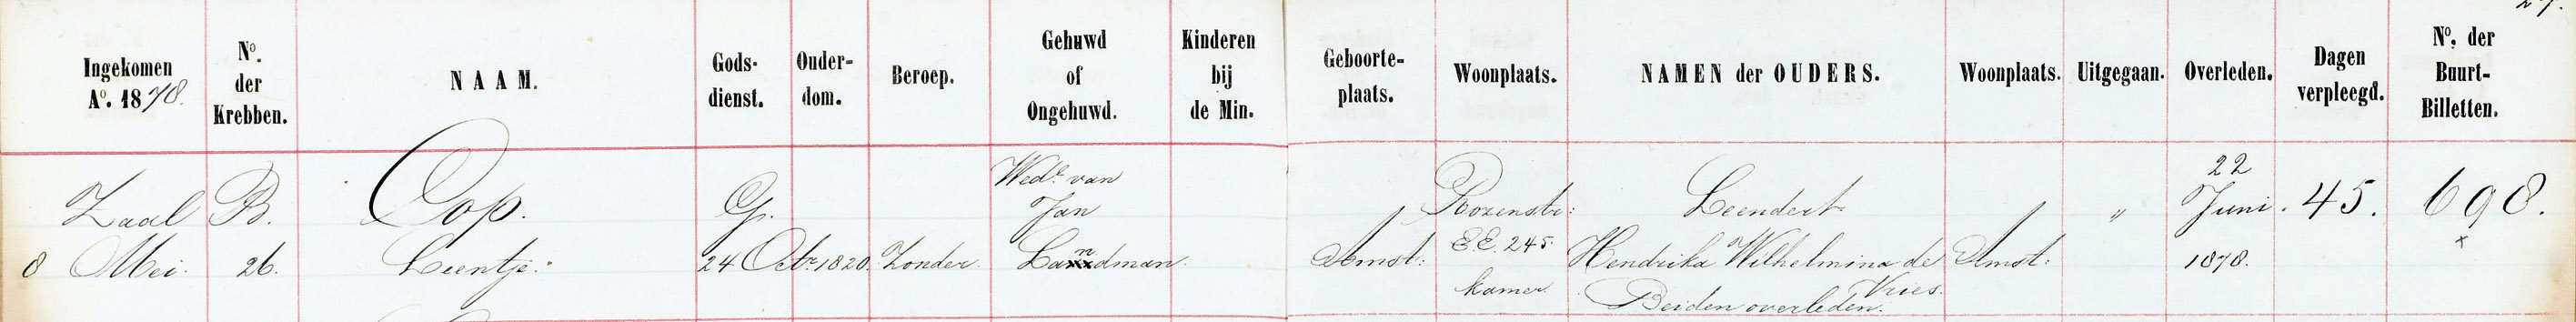 27.
Ingekomen
Aº. 1878.
Nº.
der
Krebben.
NAAM.
Gods-
dienst.
Ouder-
dom.
Beroep.
Gehuwd
of
Ongehuwd.
Kinderen
bij
de Min.
Geboorte-
plaats.
Woonplaats.
NAMEN der OUDERS.
Woonplaats.
Uitgegaan.
Overleden.
Dagen
verpleegd.
Nº. der
Buurt-
Billetten.
Zaal B.
8 Mei.
26.
Cop.
Leentje.
G.
24 Octr. 1820.
Zonder.
Wede. van
Jan
Landman.
Amst:
Rozenstr:
EE. 245.
kamer
Leendert
Hendrika Wilhelmina de
Vries.
Beiden overleden.
Amst:
"
22
Juni.
1878.
45.
698.
x